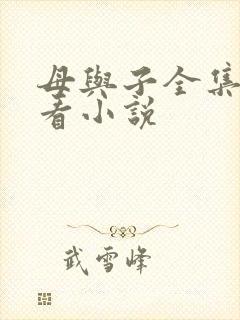 母與子全集
看小說
武雪峰